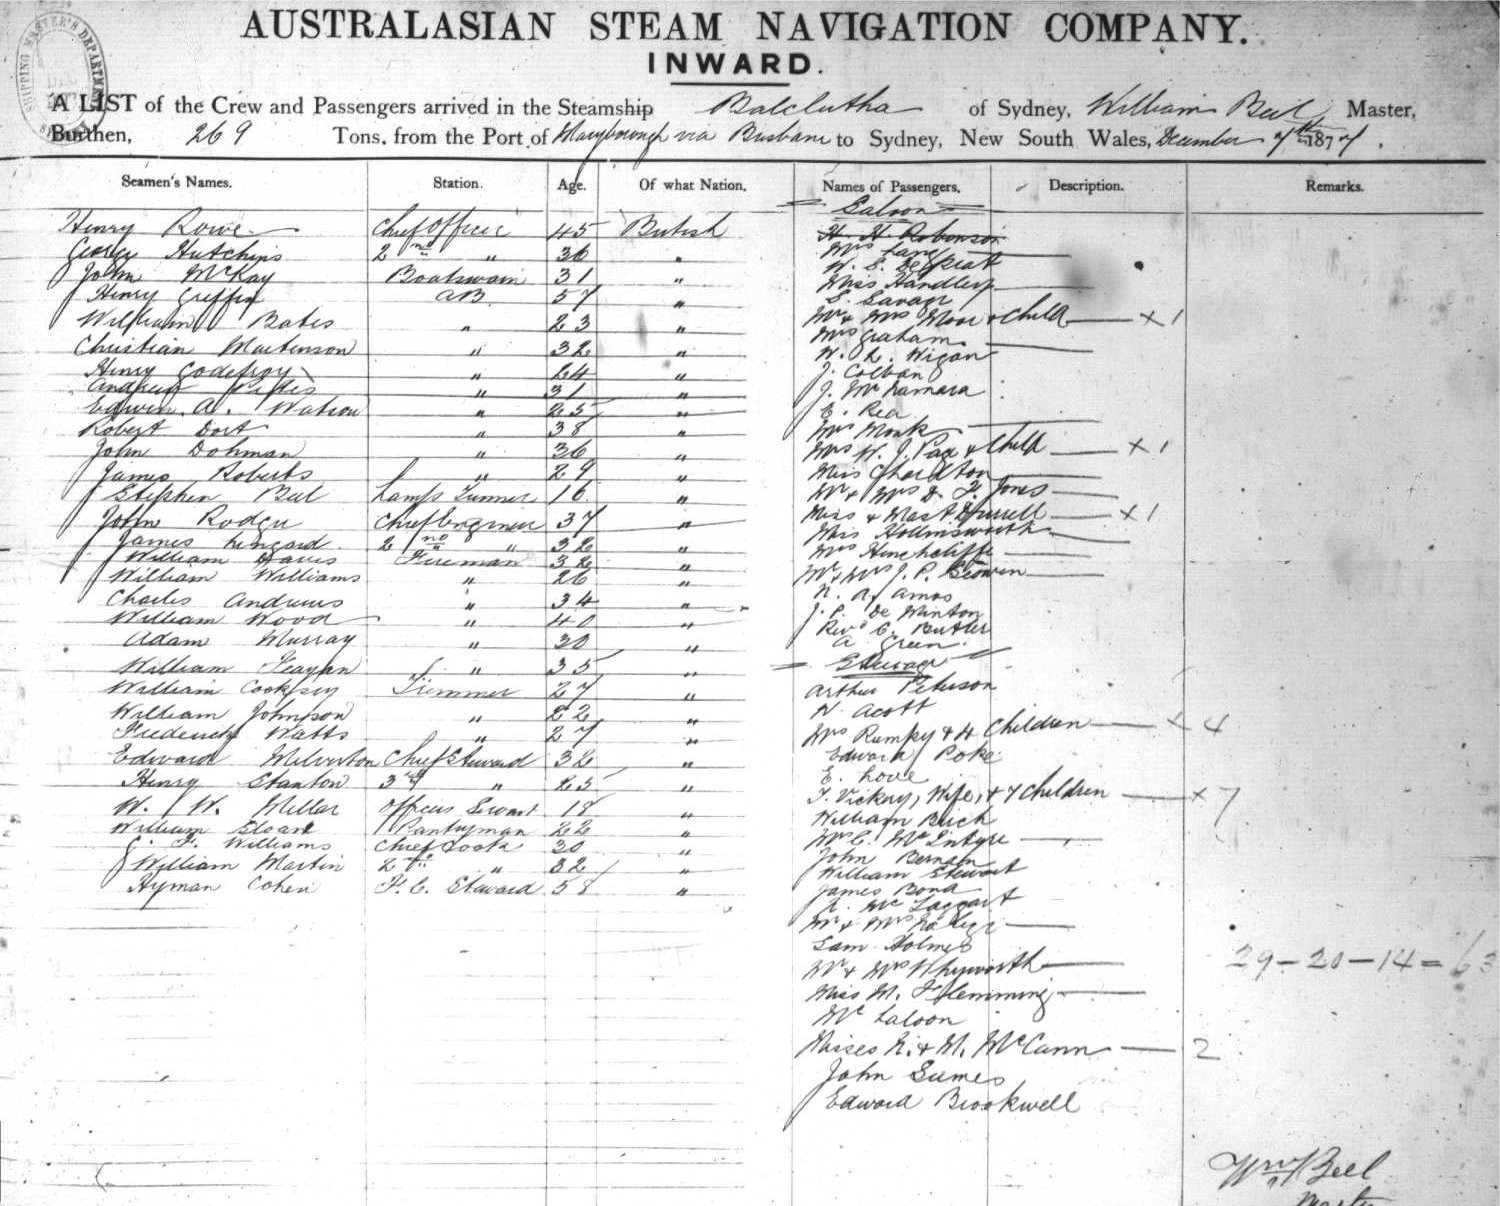 SHIPPING MASTER'S DEPARTMENT
AUSTRALASIAN STEAM NAVIGATION COMPANY.
INWARD.
A LIST of the Crew and Passengers arrived in the Steamship Balclutha of Sydney, William Beel, Master,
Burthen, 269 Tons, from the Port of Maryborough via Brisbane to Sydney, New South Wales, December 7th 1877.
Seamen's Names. Station. Age. Of what Nation. Names of Passengers. Description. Remarks.
Henry Rowe Chief Officer 45 British
George Hutchins 2nd " 36 "
John McKay Boatswain 31 "
Henry Griffin AB 57 "
William Bates " 23 "
Christian Martinson " 32 "
Henry Godefroy " 24 "
Andrew " 31 "
Edwin A. Watson " 25 "
Robert Dort " 38 "
John Dohman " 36 "
James Roberts " 29 "
Stephen Beel Lamp Trimmer 16 "
John Rodger Chief Engineer 37 "
James Lingard 2nd " 32 "
William Davis Fireman 32 "
William Williams " 26 "
Charles Andrews " 34 "
William Wood " 40 "
Adam Murray " 30 "
William Feagan " 35 "
William Cooksey Trimmer 27 "
William Johnson " 22 "
Frederick Watts " 27 "
Edward Milverton Chief Steward 32 "
Henry Stanton 3rd " 25 "
W. W. Millar Officers Servant 18 "
William Sloane Pantryman 22 "
J. F. Williams Chief Cook 30 "
William Martin 2nd " 32 "
Hyman Cohen F. C. Steward 58 "
Saloon
H. H. Robinson
Mrs Lane
W. S.
Miss Handley
S. Savage
Mr & Mrs Moor & Child x 1
Mrs Graham
W. L. Wigan
J. Colban
J. McNamara
C. Rea
Mrs Monk
Mrs W. J. Pax & Child x 1
Miss Chardton
Mr & Mrs D. F. Jones
Miss & Mast Durrell x 1
Miss Hollinsworth
Mrs Hinchcliffe
Mr & Mrs J. P.
N. A. Amos
J. P. De Winton
Revd C. Butler
A Green
Steerage
Arthur Peterson
N. Acott
Mrs Rumpy & 4 Children x 4
Edward Poke
E. Love
T. Vickery, Wife, & 7 Children x 7
William Buch
Mrs C. McIntyre
John
William Stewart
James Bond
McTaggart
Mr & Mrs
Sam Holmes
Mr & Mrs Whyworth
Miss M. Flemming
Mc Laloon
Misses N. & M. McCann 2
John Seemes
Edward Brookwell
29-20-14=63
Wm Beel
Master